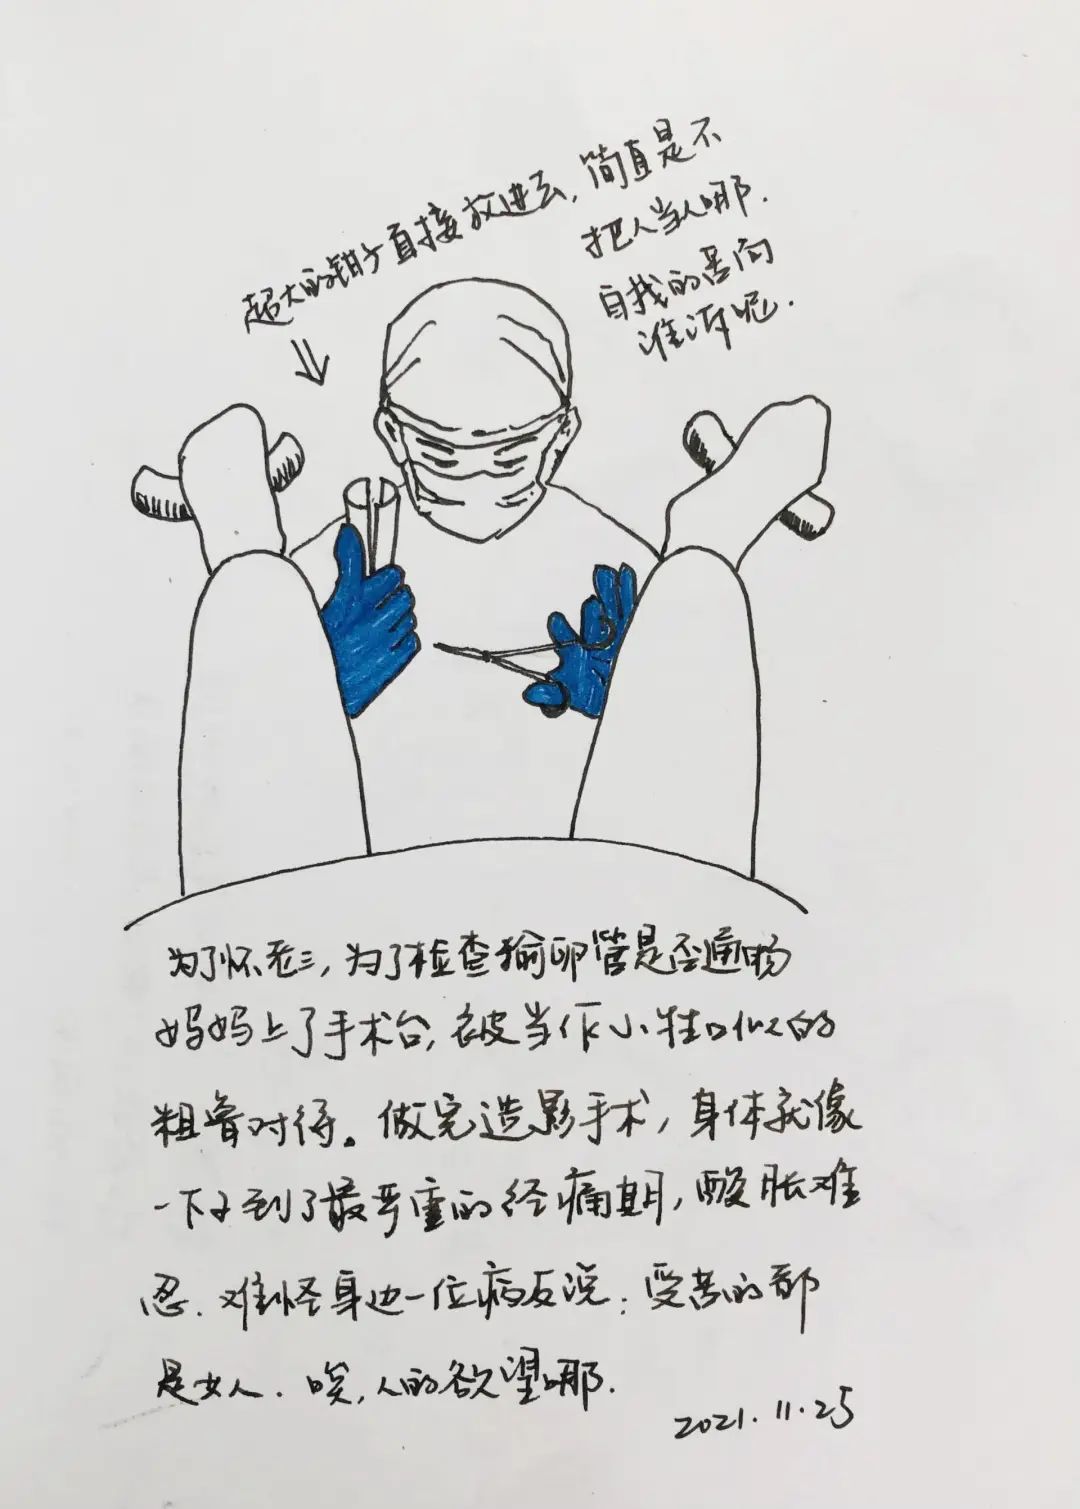 超大的钳子直接放进去,简直是不
把人当人哪.
自找的苦向
谁诉呢.
为了怀老三,为了检查输卵管是否通畅
妈妈上了手术台,被当作小牲口似的
粗鲁对待。做完造影手术,身体就像
一下子到了最严重的经痛期,酸胀难
忍.难怪身边一位病友说:受苦的都
是女人.唉,人的欲望哪.
2021.11.25